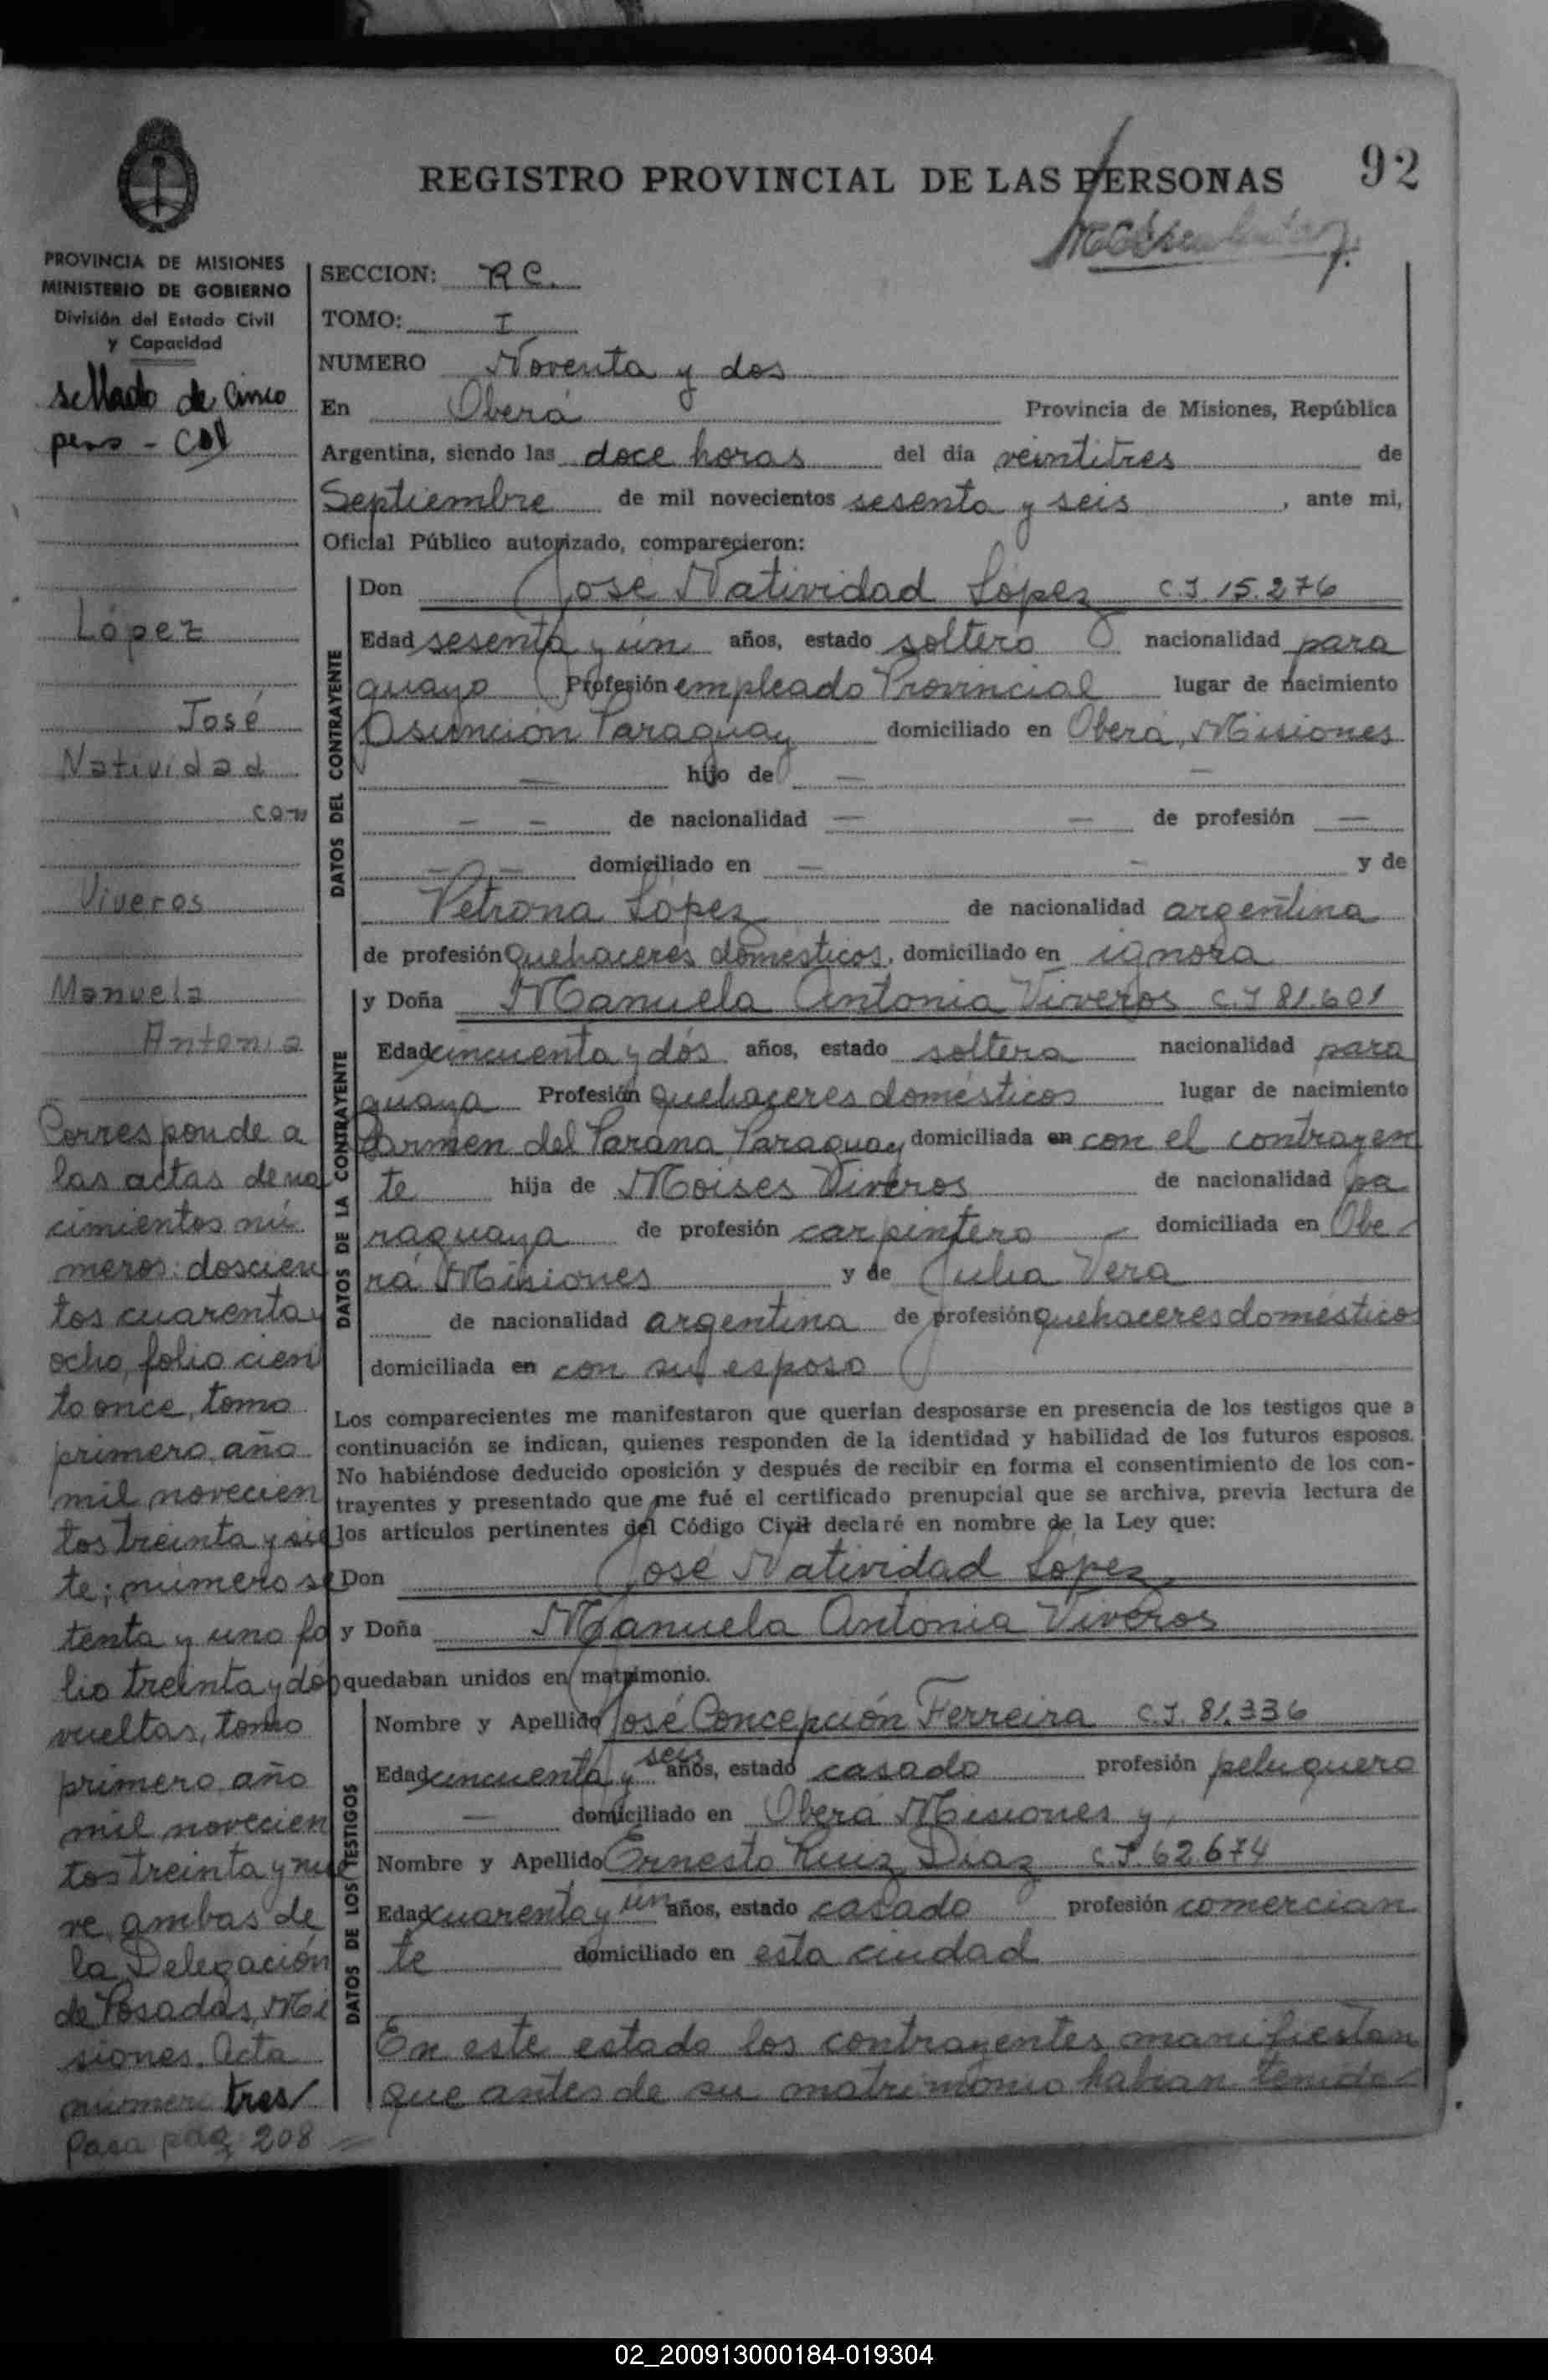 92
REGISTRO PROVINCIAL DE LAS PERSONAS
PROVINCIA DE MISIONES
MINISTERIO DE GOBIERNO
División del Estado Civil
y Capacidad
sellado de cinco
peso -
López
José
Natividad
con
Viveros
Manuela
Antonia
Corresponde a
las actas de na
cimientos nú
meros: doscien
tos cuarenta y
ocho, folio cien
to once, tomo
primero, año
mil novecien
tos treinta y sie
te; número se
tenta y uno fo
lio treinta y dos
vueltas, tomo
primero, año
mil novecien
tos treinta y nue
ve, ambas de
la Delegación
de Posadas, Mi
siones. Acta
número tres/
Pasa pág 208
SECCION: RC.
TOMO: I
NUMERO Noventa y dos
En Oberá Provincia de Misiones, República
Argentina, siendo las doce horas del día veintitres de
Septiembre de mil novecientos sesenta y seis, ante mi,
Oficial Público autorizado, comparecieron:
DATOS DEL CONTRAYENTE
Don José Natividad López C.I. 15.276
Edad sesenta y ún años, estado soltero nacionalidad para
guayo Profesión empleado Provincial lugar de nacimiento
Asunción Paraguay domiciliado en Oberá, Misiones
— hijo de — —
— — de nacionalidad — — de profesión —
— — domiciliado en — — y de
Petrona López de nacionalidad argentina
de profesión quehaceres domésticos, domiciliado en ignora
DATOS DE LA CONTRAYENTE
y Doña Manuela Antonia Viveros C.I 81.601
Edad cincuenta y dós años, estado soltera nacionalidad para
guaya Profesión quehaceres domésticos lugar de nacimiento
Carmen del Paraná, Paraguay domiciliada en con el contrayen
te hija de Moises Viveros de nacionalidad pa
raguaya de profesión carpintero — domiciliada en Obe-
rá Misiones y de Julia Vera
de nacionalidad argentina de profesión quehaceres domésticos
domiciliada en con su esposo
Los comparecientes me manifestaron que querían desposarse en presencia de los testigos que a
continuación se indican, quienes responden de la identidad y habilidad de los futuros esposos.
No habiéndose deducido oposición y después de recibir en forma el consentimiento de los con-
trayentes y presentado que me fué el certificado prenupcial que se archiva, previa lectura de
los artículos pertinentes del Código Civil declaré en nombre de la Ley que:
Don José Natividad López
y Doña Manuela Antonia Viveros
quedaban unidos en matrimonio.
DATOS DE LOS TESTIGOS
Nombre y Apellido José Concepción Ferreira C.I. 81.336
Edad cincuenta y seis años, estado casado profesión peluquero
— domiciliado en Oberá Misiones y,
Nombre y Apellido Ernesto Ruiz Diaz C.I. 62.674
Edad cuarenta y ún años, estado casado profesión comercian
te domiciliado en esta ciudad
En este estado los contrayentes manifiestan
que antes de su matrimonio habian tenido
02_200913000184-019304